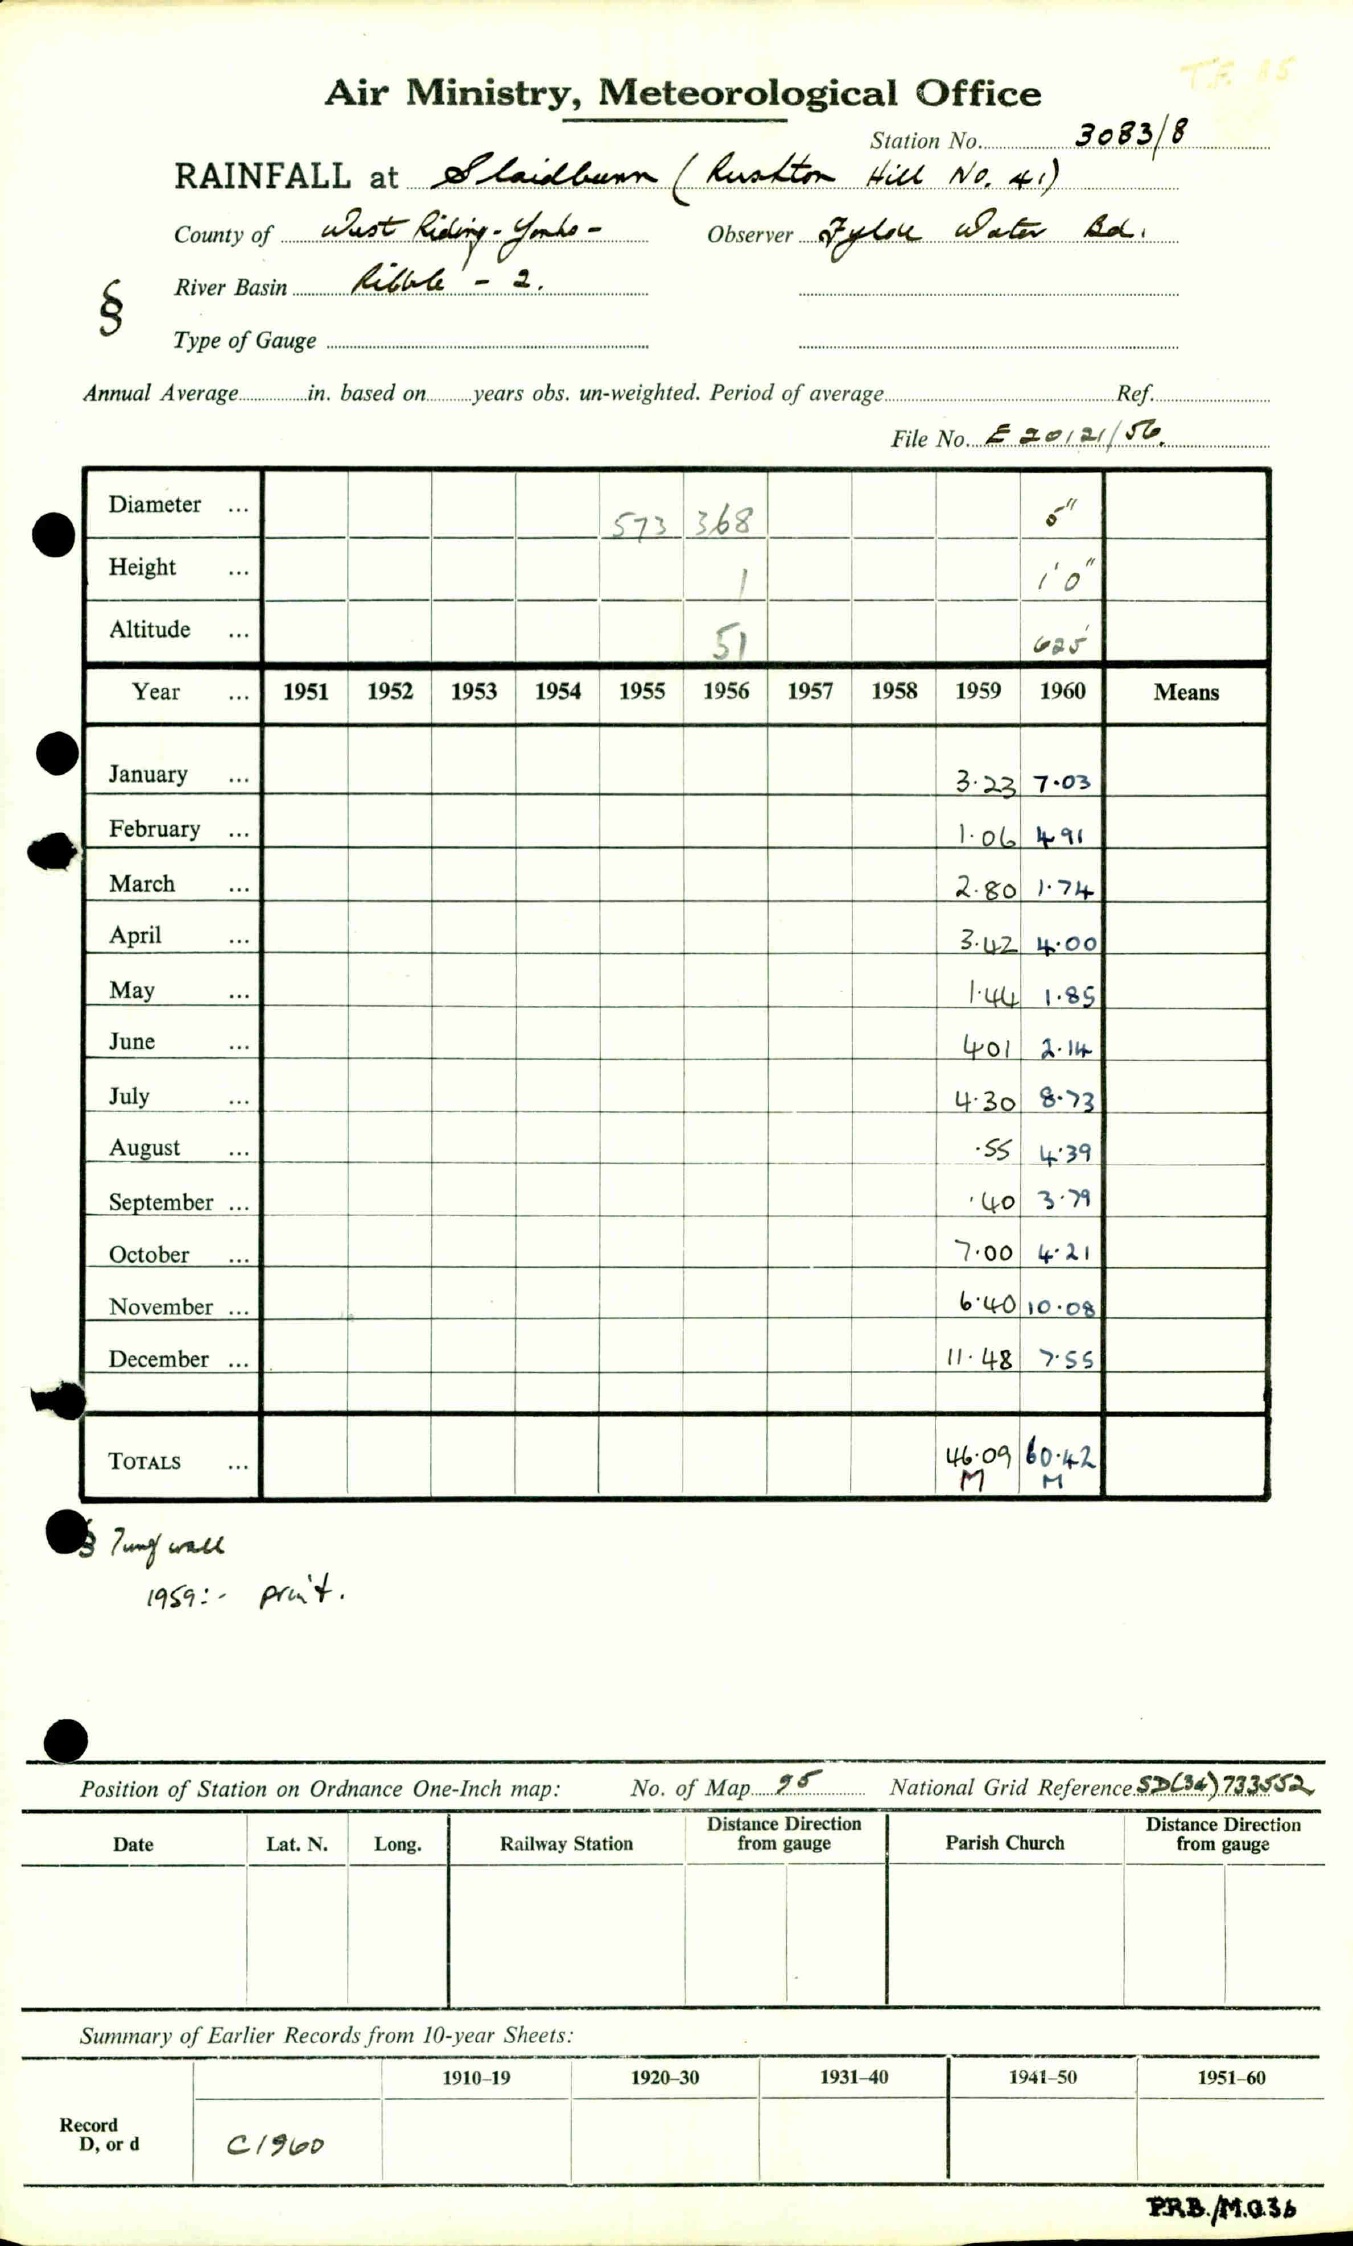 T.F. 85
Air Ministry, Meteorological Office
Station No. 3083/8
RAINFALL at Slaidburn (Rushton Hill No. 41)
County of West Riding - Yorks - Observer Fylde Water Bd.
§ River Basin Ribble - 2.
Type of Gauge
Annual Average in. based on years obs. un-weighted. Period of average Ref.
File No. E 20121/56.
Diameter ... 573 368 5"
Height ... 1 1' 0"
Altitude ... 51 625'
Year ... 1951 1952 1953 1954 1955 1956 1957 1958 1959 1960 Means
January ... 3.23 7.03
February ... 1.06 4.91
March ... 2.80 1.74
April ... 3.42 4.00
May ... 1.44 1.85
June ... 4.01 2.14
July ... 4.30 8.73
August ... .55 4.39
September ... .40 3.79
October ... 7.00 4.21
November ... 6.40 10.08
December ... 11.48 7.55
TOTALS ... 46.09 60.42
M M
§ Turf wall
1959:-
Position of Station on Ordnance One-Inch map: No. of Map 95 National Grid Reference SD(34)733552
Date Lat. N. Long. Railway Station Distance Direction from gauge Parish Church Distance Direction from gauge
Summary of Earlier Records from 10-year Sheets:
1910–19 1920–30 1931–40 1941–50 1951–60
Record
D, or d C1960
P.R.B./M.O.36